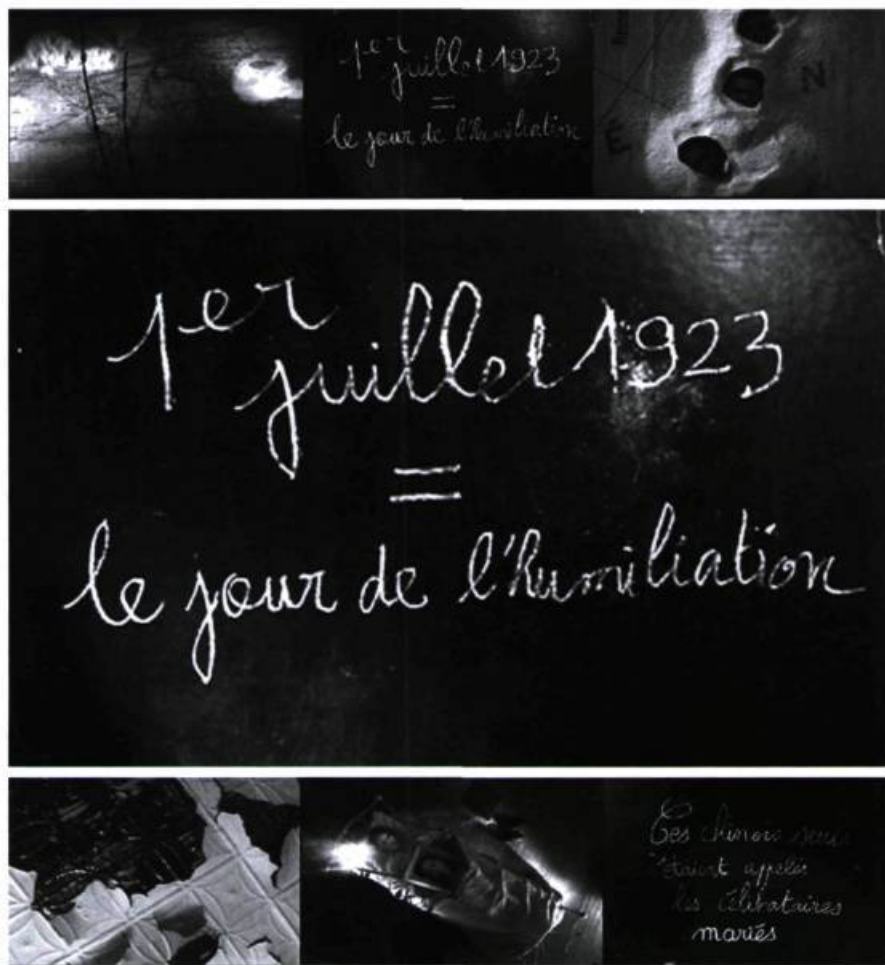 1er
juillet 1923
=
le jour de l'humiliation
É
N
1er
juillet 1923
=
le jour de l'humiliation
Ces chinois seuls
étaient appelés
les célibataires
mariés